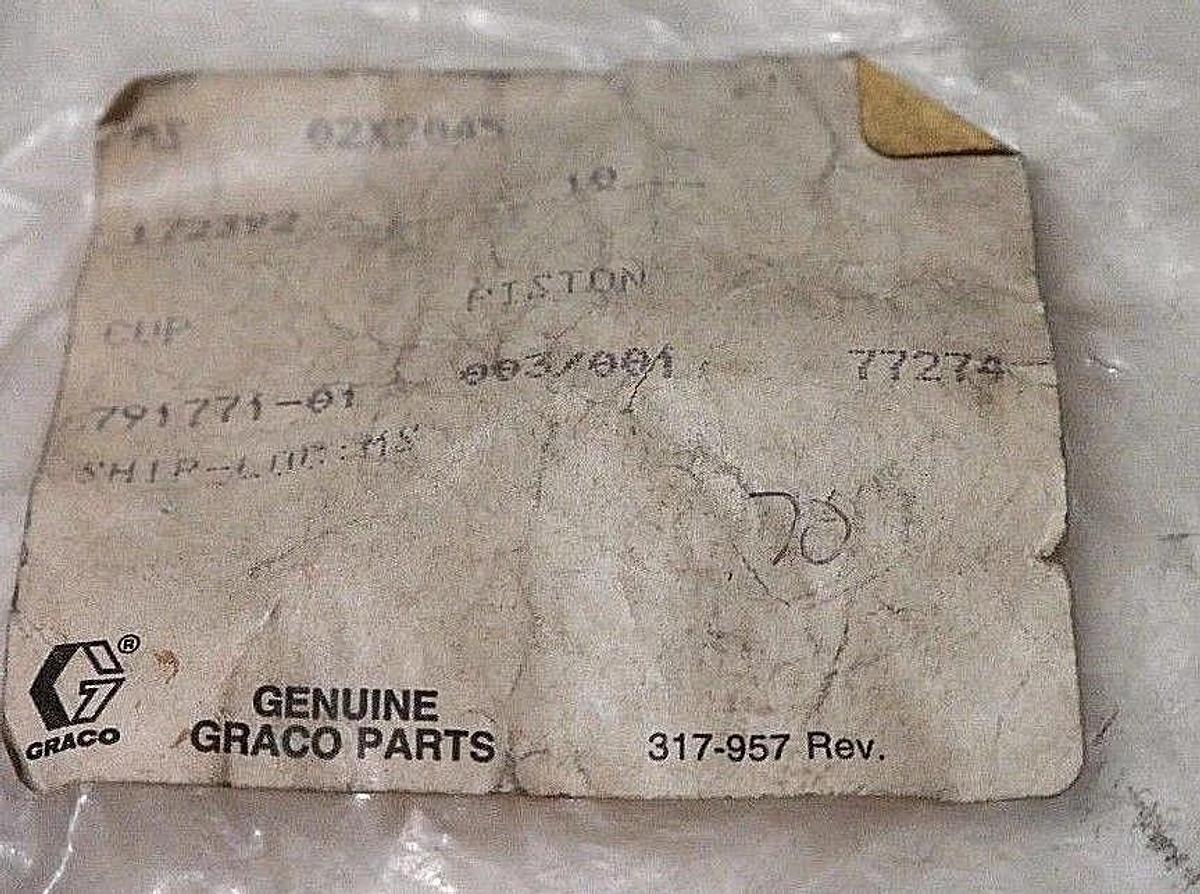 MS 02X2045
172392 10
CUP PISTON
791771-01 003/001 77274
SHIP-LBR:MS
70
®
GRACO
GENUINE
GRACO PARTS
317-957 Rev.